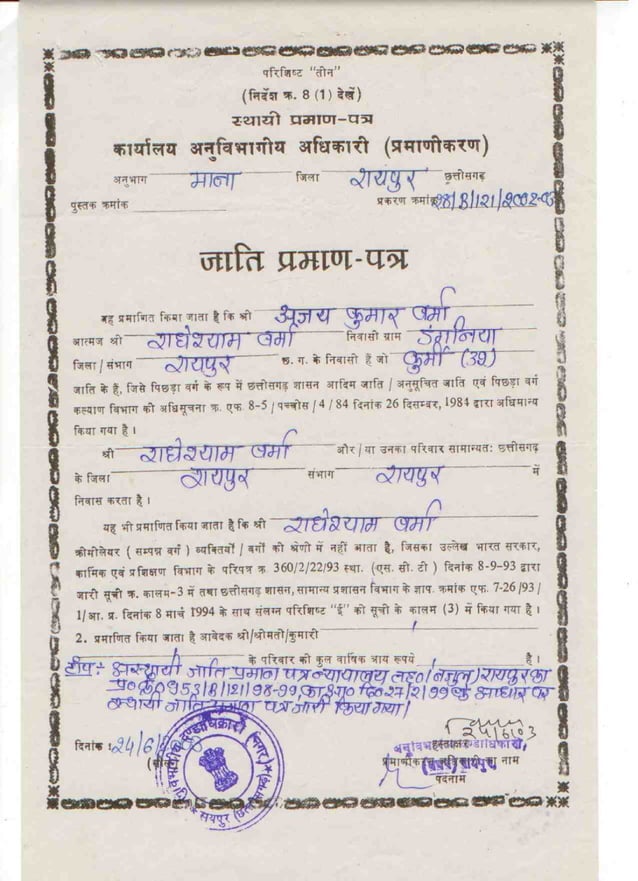 परिशिष्ट "तीन"
(निर्देश क्र. 8 (1) देखें)
स्थायी प्रमाण-पत्र
कार्यालय अनुविभागीय अधिकारी (प्रमाणीकरण)
अनुभाग माना जिला रायपुर छत्तीसगढ़
पुस्तक क्रमांक प्रकरण क्रमांक 28/B/121/2002-03
जाति प्रमाण-पत्र
यह प्रमाणित किया जाता है कि श्री अजय कुमार वर्मा
आत्मज श्री राधेश्याम वर्मा निवासी ग्राम
जिला / संभाग रायपुर छ. ग. के निवासी हैं जो कुर्मी (39)
जाति के हैं, जिसे पिछड़ा वर्ग के रूप में छत्तीसगढ़ शासन आदिम जाति / अनुसूचित जाति एवं पिछड़ा वर्ग
कल्याण विभाग की अधिसूचना क्र. एफ. 8-5 / पच्चीस / 4 / 84 दिनांक 26 दिसम्बर, 1984 द्वारा अधिमान्य
किया गया है ।
श्री राधेश्याम वर्मा और / या उनका परिवार सामान्यत: छत्तीसगढ़
के जिला रायपुर संभाग रायपुर में
निवास करता है ।
यह भी प्रमाणित किया जाता है कि श्री राधेश्याम वर्मा
क्रीमीलेयर ( सम्पन्न वर्ग ) व्यक्तियों / वर्गो की श्रेणी में नहीं आता है, जिसका उल्लेख भारत सरकार,
कार्मिक एवं प्रशिक्षण विभाग के परिपत्र क्र. 360/2/22/93 स्था. (एस. सी. टी ) दिनांक 8-9-93 द्वारा
जारी सूची क्र. कालम-3 में तथा छत्तीसगढ़ शासन, सामान्य प्रशासन विभाग के ज्ञाप. क्रमांक एफ. 7-26 /93 /
1/ आ. प्र. दिनांक 8 मार्च 1994 के साथ संलग्न परिशिष्ट "ई" को सूची के कालम (3) में किया गया है ।
2. प्रमाणित किया जाता है आवेदक श्री/श्रीमती/कुमारी
के परिवार की कुल वार्षिक आय रूपये है ।
टीप:- अस्थायी जाति प्रमाण पत्र न्यायालय रायपुर का
के आधार पर
स्थायी जाति प्रमाण पत्र जारी किया गया।
24/6/03
दिनांक : 24/6/
प्रमाणीकरण का नाम
पदनाम